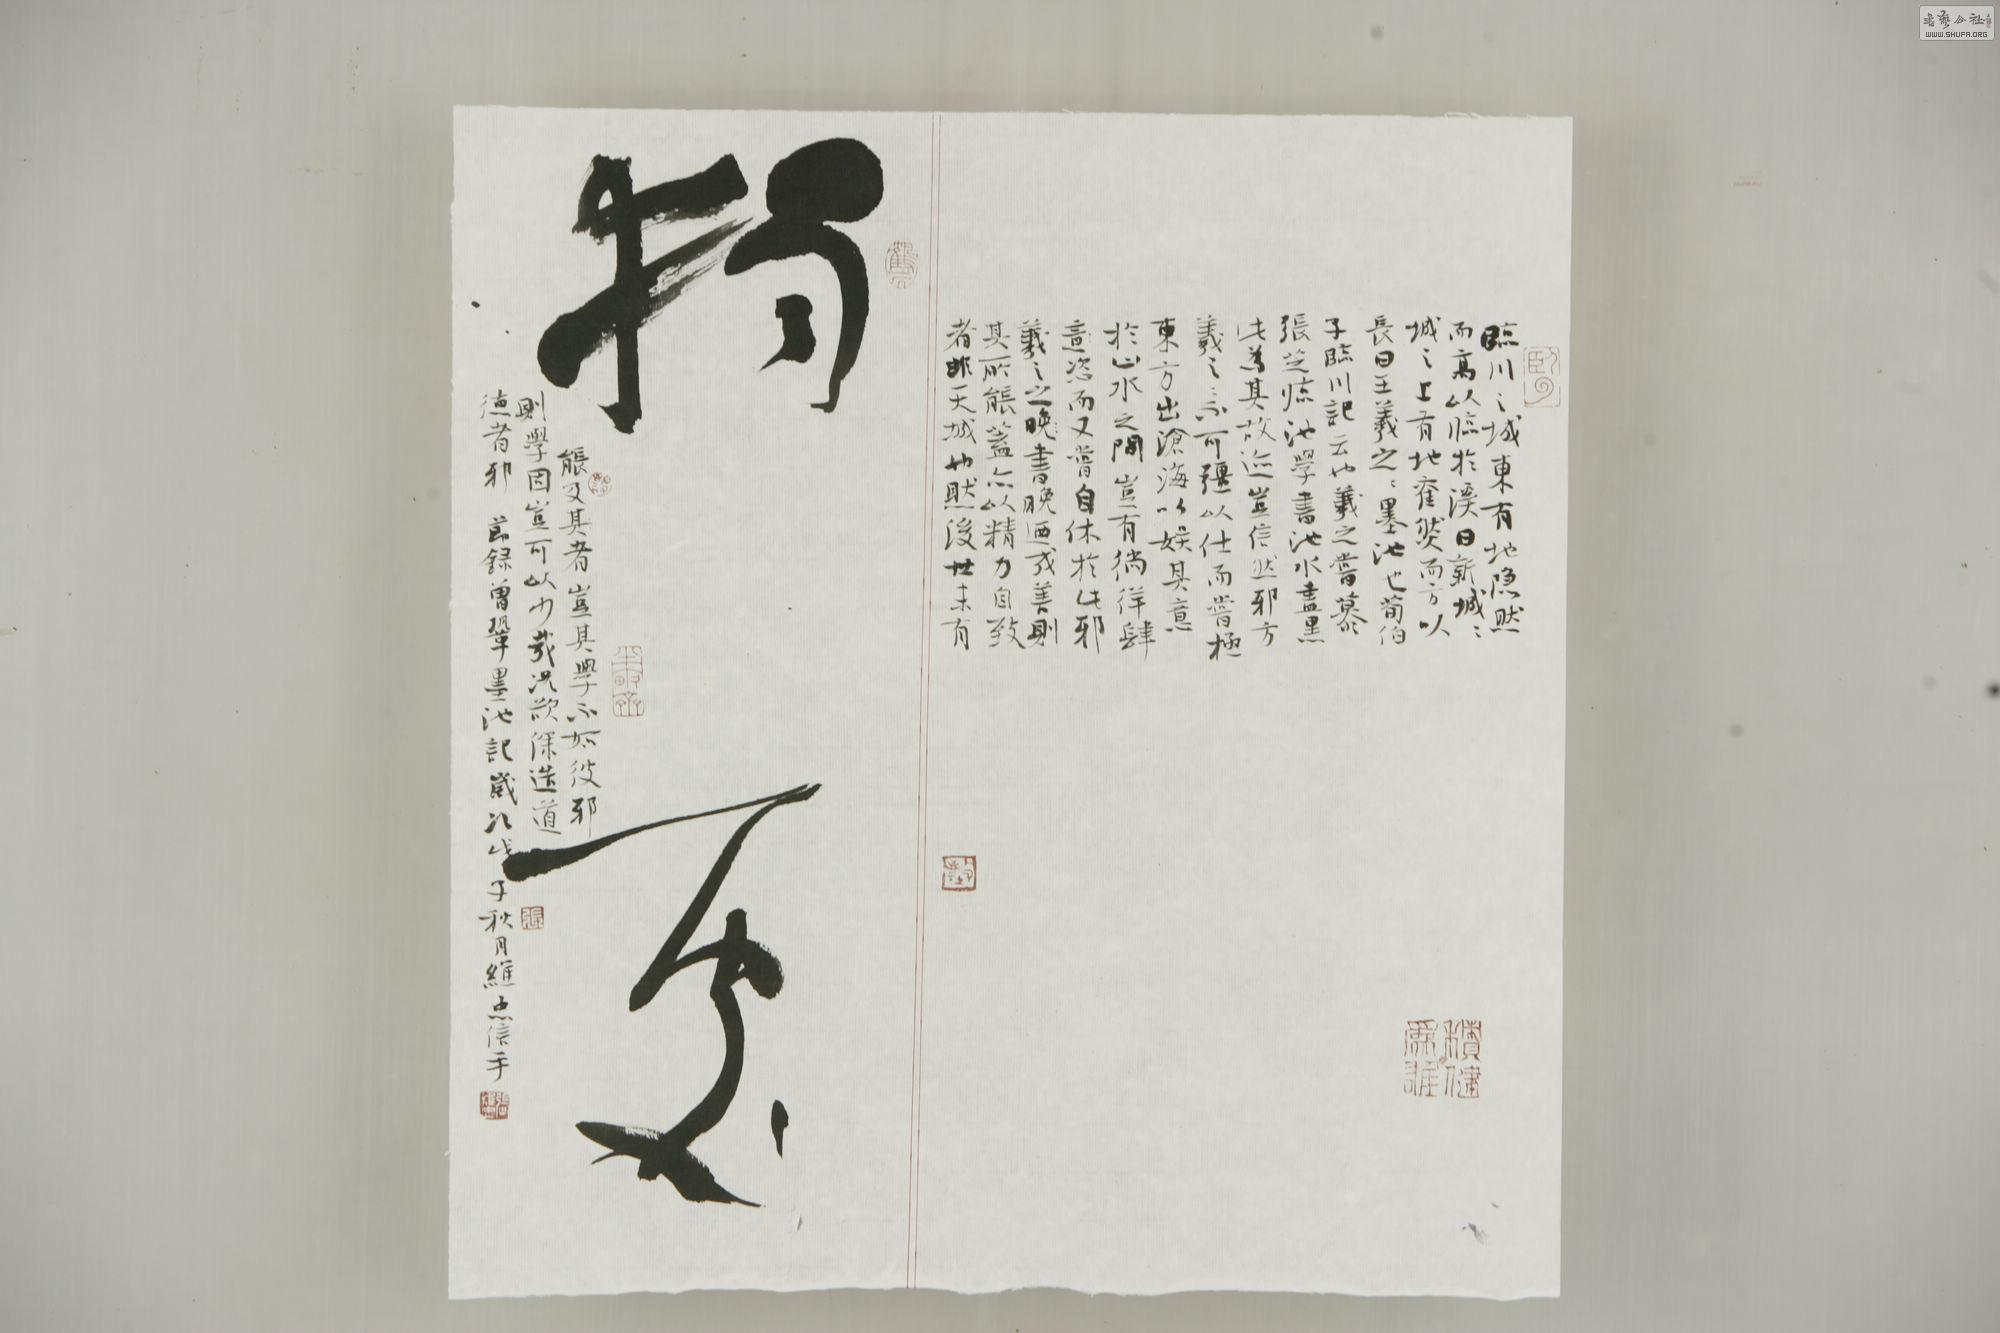 臨川之城東有地隱然
而高以臨於溪曰新城〻
城之上有地窪然而方以
長曰王羲之〻墨池也荀伯
子臨川記云也羲之嘗慕
張芝臨池學書池水盡黑
此為其故迹豈信然邪方
羲之不可彊以仕而嘗極
東方出滄海以娛其意
於山水之間豈有徜徉肆
意恣而又嘗自休於此邪
羲之之晚書晚廼成善則
其所能蓋亦以精力自致
者非天城也然後世未有
能及其者豈其學不如彼邪
則學固豈可以少哉況欲深造道
德者邪 節錄曾鞏墨池記歲次戊子秋月維忠信手
積健為雄
張
书艺公社
WWW.SHUFA.ORG